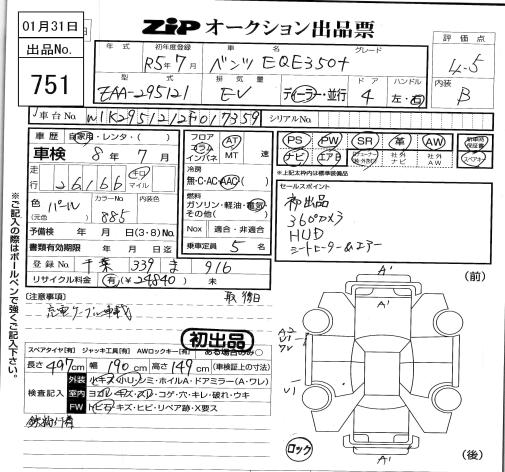 01月31日
出品No.
751
ZIP オークション出品票
年式 初年度登録 車名 グレード
R5年7月 ベンツ EQE350+
型式 排気量 ドア ハンドル
ZAA-295121 EV ディーラー・並行 4 左・右
評価点
4.5
内装
B
車台No. W1K2951212F017359 シリアルNo.
車歴 自家用・レンタ・( )
車検 8年7月
走行 26166 キロ マイル
色(元色) パール カラーNo. 885 内装色
予備検 年 月 日(3・8)No.
書類有効期限 年 月 日迄
登録No. 千葉 339 ま 916
リサイクル料金 有(¥24840) 未
フロア コラム インパネ AT MT 速
冷房 無・C・AC・AAC
燃料 ガソリン・軽油・電気・その他( )
Nox 適合・非適合
乗車定員 5名
PS PW SR 革 AW
ナビ エアB 社外ナビ 社外AW
新車時保証書
スペアキー
*上記太枠内は標準装備品
セールスポイント
初出品
360°カメラ
HUD
シートヒーター&エアー
[注意事項] 取後日
充電ケーブル車載
初出品
スペアタイヤ[有] ジャッキ工具[有] AWロックキー[有] ある場合のみ○
長さ497cm 幅190cm 高さ149cm (車検証上の寸法)
検査記入
外装 小キズ・小リ・シミ・ホイルA・ドアミラー(A・ワレ)
室内 ヨゴレ・キズ・スレ・コゲ・穴・キレ・破れ・ウキ
FW トビ石・キズ・ヒビ・リペア跡・X要ス
※ご記入の際はボールペンで強くご記入下さい。
(前)
A'
A'
A2
U1
ロック
A'
(後)